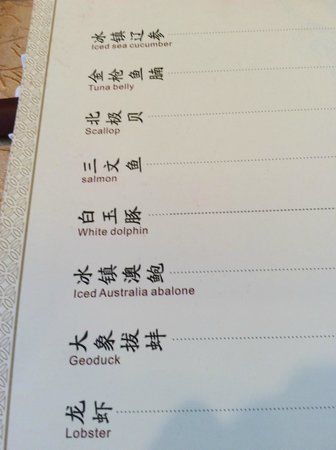 冰镇辽参
Iced sea cucumber
金枪鱼腩
Tuna belly
北极贝
Scallop
三文鱼
salmon
白玉豚
White dolphin
冰镇澳鲍
Iced Australia abalone
大象拔蚌
Geoduck
龙虾
Lobster